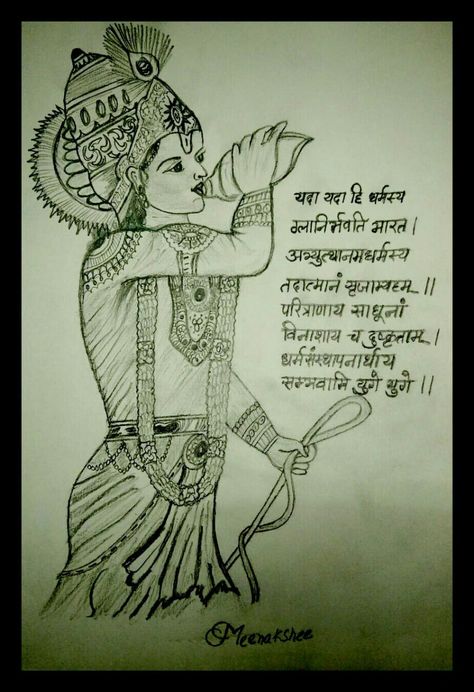 यदा यदा हि धर्मस्य
ग्लानिर्भवति भारत।
अभ्युत्थानमधर्मस्य
तदात्मानं सृजाम्यहम् ।।
परित्राणाय साधूनां
विनाशाय च दुष्कृताम्।
धर्मसंस्थापनार्थाय
सम्भवामि युगे युगे ।।
Meenakshee